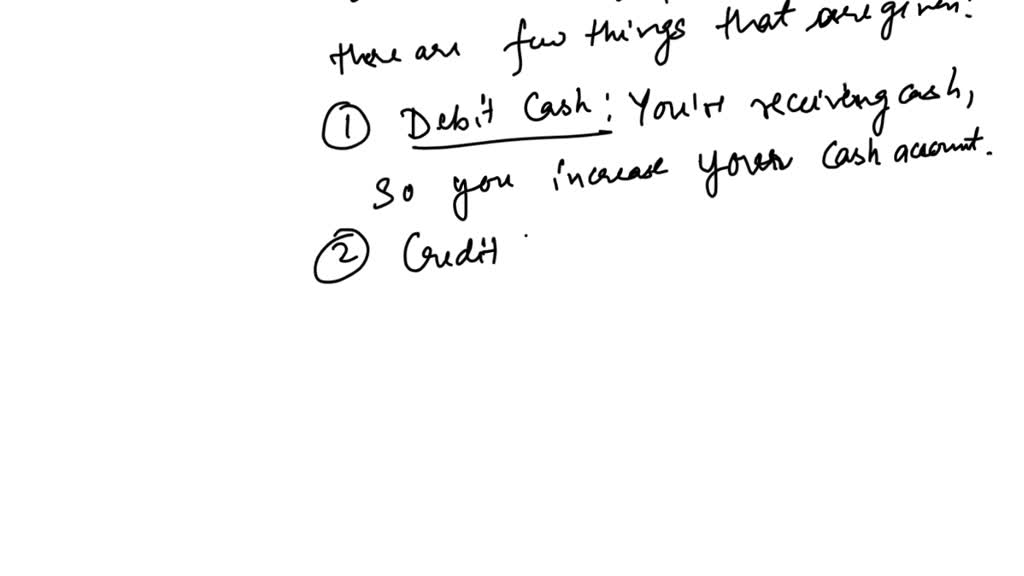 there are few things that are given:
① Debit Cash: You're receiving cash,
So you increase your cash account.
② Credit